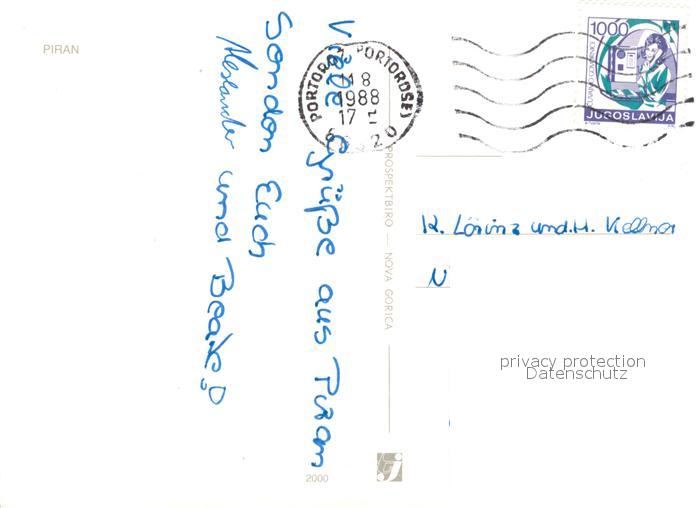 PIRAN
Viele Grüße aus Piran
Senden Euch
Alexander und Beate
PORTOROŽ PORTOROSE
11 8
1988
17
6320
1000
ČUVAJMO GOVORNICE
JUGOSLAVIJA
PROSPEKTBIRO — NOVA GORICA
K. Lörinz und H. Kellner
N
privacy protection
Datenschutz
2000